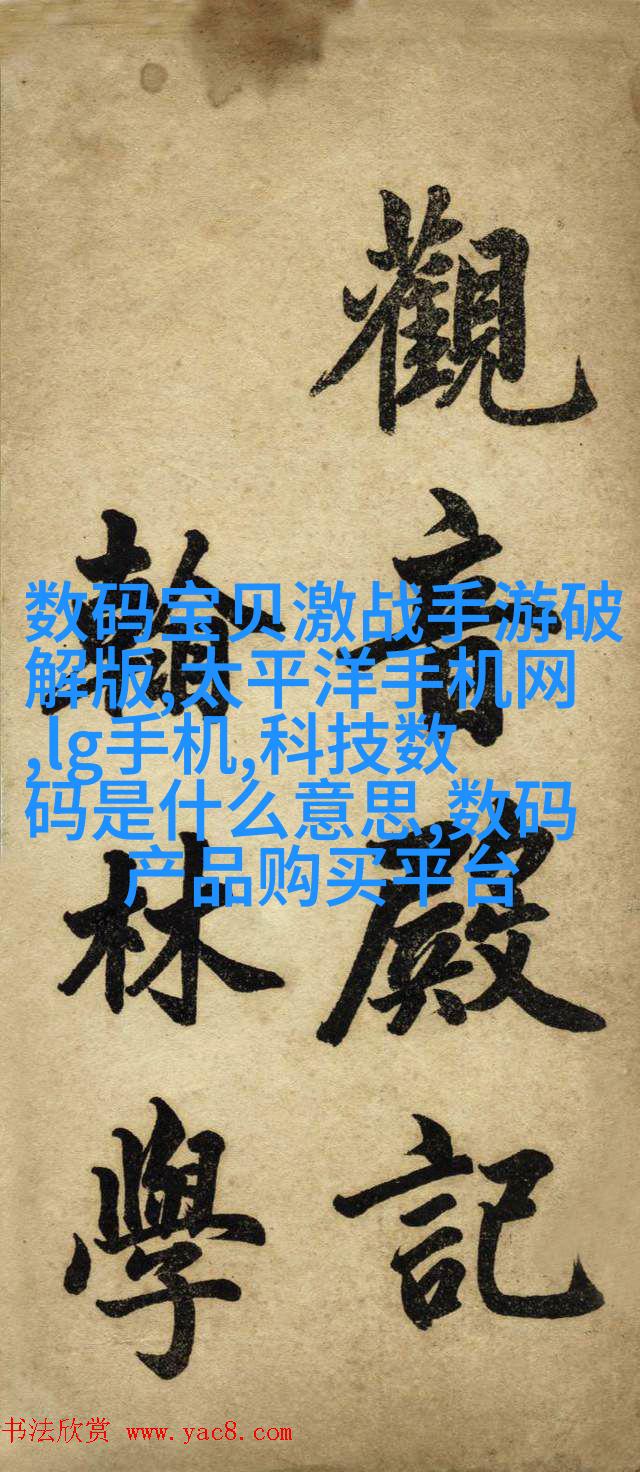 觀音殿記
翰林學
数码宝贝激战手游破
解版,太平洋手机网
,lg手机,科技数
码是什么意思,数码
产品购买平台
书法欣赏 www.yac8.com